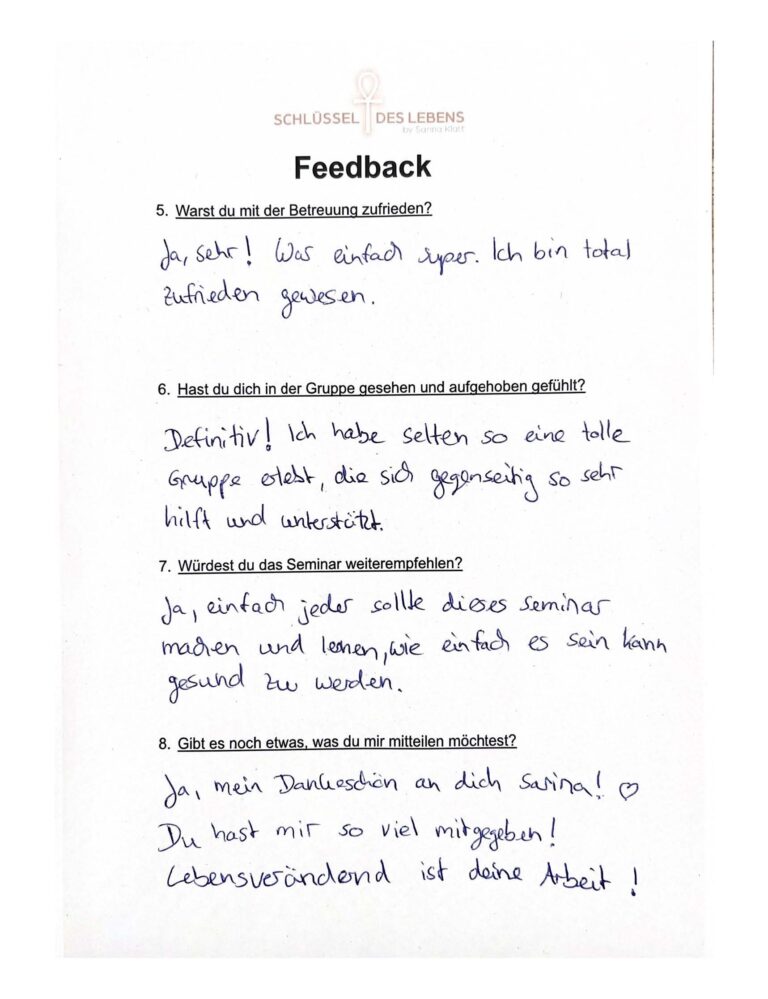 SCHLÜSSEL DES LEBENS
by Sarina Klatt
Feedback
5. Warst du mit der Betreuung zufrieden?
Ja, sehr! War einfach super. Ich bin total
zufrieden gewesen.
6. Hast du dich in der Gruppe gesehen und aufgehoben gefühlt?
Definitiv! Ich habe selten so eine tolle
Gruppe erlebt, die sich gegenseitig so sehr
hilft und unterstützt.
7. Würdest du das Seminar weiterempfehlen?
Ja, einfach jeder sollte dieses Seminar
machen und lernen, wie einfach es sein kann
gesund zu werden.
8. Gibt es noch etwas, was du mir mitteilen möchtest?
Ja, mein Dankeschön an dich Sarina! ♡
Du hast mir so viel mitgegeben!
Lebensverändernd ist deine Arbeit!